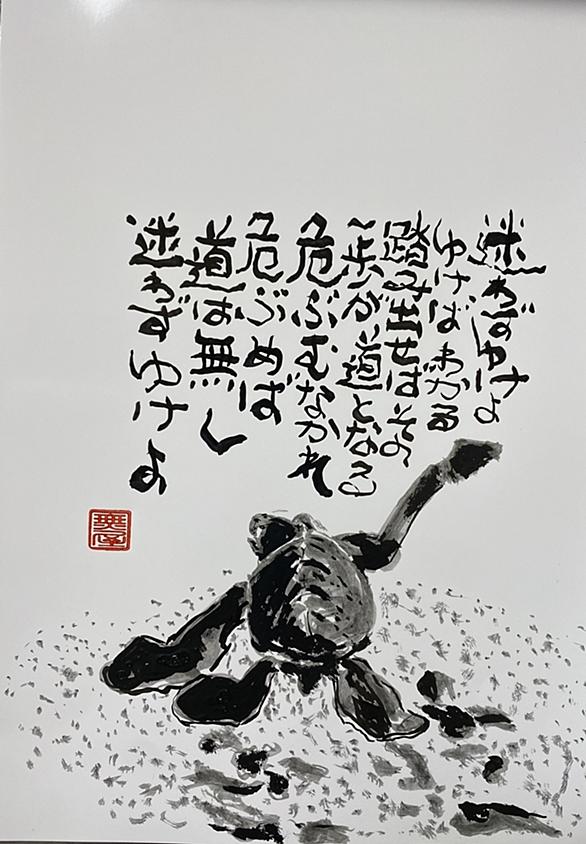 迷わずゆけよ
ゆけばわかる
踏み出せばその
一歩が道となる
危ぶむなかれ
危ぶめば
道は無し
迷わずゆけよ